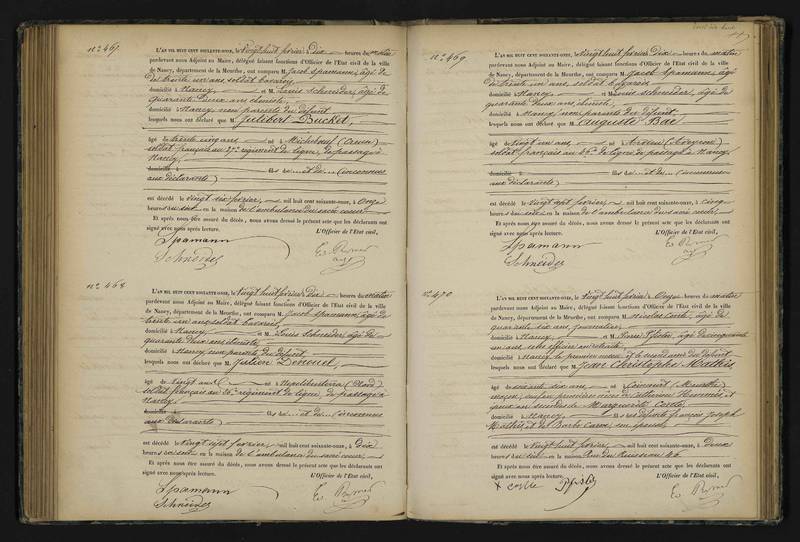 N° 467
L'AN MIL HUIT CENT SOIXANTE-ONZE, le vingt huit février à Dix heures du matin
pardevant nous Adjoint au Maire, délégué faisant fonctions d'Officier de l'Etat civil de la ville
de Nancy, département de la Meurthe, ont comparu M. Jacob Spamann, âgé de
de trente un ans, soldat bavarois,
domicilié à Nancy, et M. Louis Schneider, âgé de
quarante deux ans, chimiste,
domicilié à Nancy, non parents du défunt
lesquels nous ont déclaré que M. Julibert Bucket,
âgé de trente cinq ans, né à (Creuse)
soldat français au régiment de ligne, de passage à
Nancy,
domicilié à fils de et de (inconnus
aux déclarants)
est décédé le vingt six février, mil huit cent soixante-onze, à Onze
heures du soir en la maison de l'ambulance du sacré coeur
Et après nous être assuré du décès, nous avons dressé le présent acte que les déclarants ont
signé avec nous après lecture. L'Officier de l'Etat civil,
Spamann
Schneider
N° 468
L'AN MIL HUIT CENT SOIXANTE-ONZE, le vingt huit février à Dix heures du matin
pardevant nous Adjoint au Maire, délégué faisant fonctions d'Officier de l'Etat civil de la ville
de Nancy, département de la Meurthe, ont comparu M. Jacob Spamann, âgé de
trente un ans, soldat bavarois,
domicilié à Nancy, et M. Louis Schneider, âgé de
quarante deux ans, chimiste,
domicilié à Nancy, non parents du défunt
lesquels nous ont déclaré que M. Julien Denouel,
âgé de vingt ans né à (Nord)
soldat français au régiment de ligne, de passage à
Nancy,
domicilié à fils de et de (inconnus
aux déclarants)
est décédé le vingt sept février, mil huit cent soixante-onze, à Dix
heures du soir en la maison de l'ambulance du sacré coeur,
Et après nous être assuré du décès, nous avons dressé le présent acte que les déclarants ont
signé avec nous après lecture. L'Officier de l'Etat civil,
Spamann
Schneider
N° 469
L'AN MIL HUIT CENT SOIXANTE-ONZE, le vingt huit février à Dix heures du matin
pardevant nous Adjoint au Maire, délégué faisant fonctions d'Officier de l'Etat civil de la ville
de Nancy, département de la Meurthe, ont comparu M. Jacob Spamann, âgé
de trente un ans, soldat bavarois
domicilié à Nancy, et M. Louis Schneider, âgé de
quarante deux ans, chimiste,
domicilié à Nancy, non parents du défunt
lesquels nous ont déclaré que M. Auguste Bac,
âgé de vingt un ans, né à (Aveyron)
soldat français au de ligne de passage à Nancy
domicilié à fils de et de (inconnus
aux déclarants)
est décédé le vingt sept février, mil huit cent soixante-onze, à cinq
heures du soir en la maison de l'ambulance du sacré coeur,
Et après nous être assuré du décès, nous avons dressé le présent acte que les déclarants ont
signé avec nous après lecture. L'Officier de l'Etat civil,
Spamann
Schneider
N° 470
L'AN MIL HUIT CENT SOIXANTE-ONZE, le vingt huit février à Onze heures du matin
pardevant nous Adjoint au Maire, délégué faisant fonctions d'Officier de l'Etat civil de la ville
de Nancy, département de la Meurthe, ont comparu M. Nicolas Coste, âgé de
quarante six ans, journalier,
domicilié à Nancy, et M. Pierre âgé de cinquante
un ans, officier en retraite,
domicilié à Nancy, le premier neveu et le second ami du défunt
lesquels nous ont déclaré que M. Jean Christophe Mathis,
âgé de soixante six ans, né à (Meurthe)
maçon, veuf en premières noces de Catherine et
époux en secondes de Marguerite Coste,
domicilié à Nancy, fils des défunts François Joseph
Mathis et de Barbe son épouse,
est décédé le vingt huit février, mil huit cent soixante-onze, à Deux
heures du en la maison Rue du Ruisseau 46
Et après nous être assuré du décès, nous avons dressé le présent acte que les déclarants ont
signé avec nous après lecture. L'Officier de l'Etat civil,